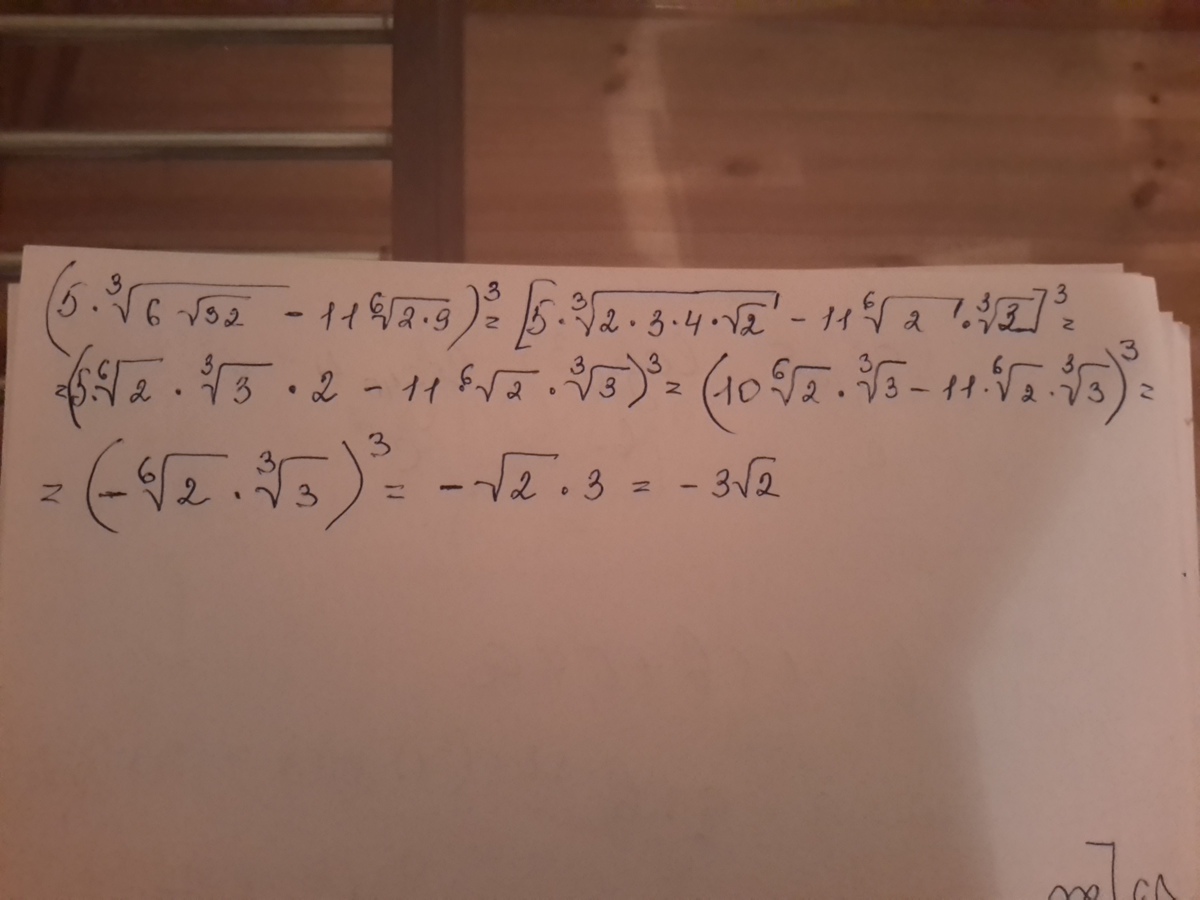 (5·∛(6√32) - 11 ⁶√(2·9))³ = [5·∛(2·3·4·√2) - 11 ⁶√2 · ∛3]³ =
= (5·⁶√2 · ∛3 · 2 - 11·⁶√2 · ∛3)³ = (10 ⁶√2 · ∛3 - 11·⁶√2 · ∛3)³ =
= (- ⁶√2 · ∛3)³ = - √2 · 3 = - 3√2